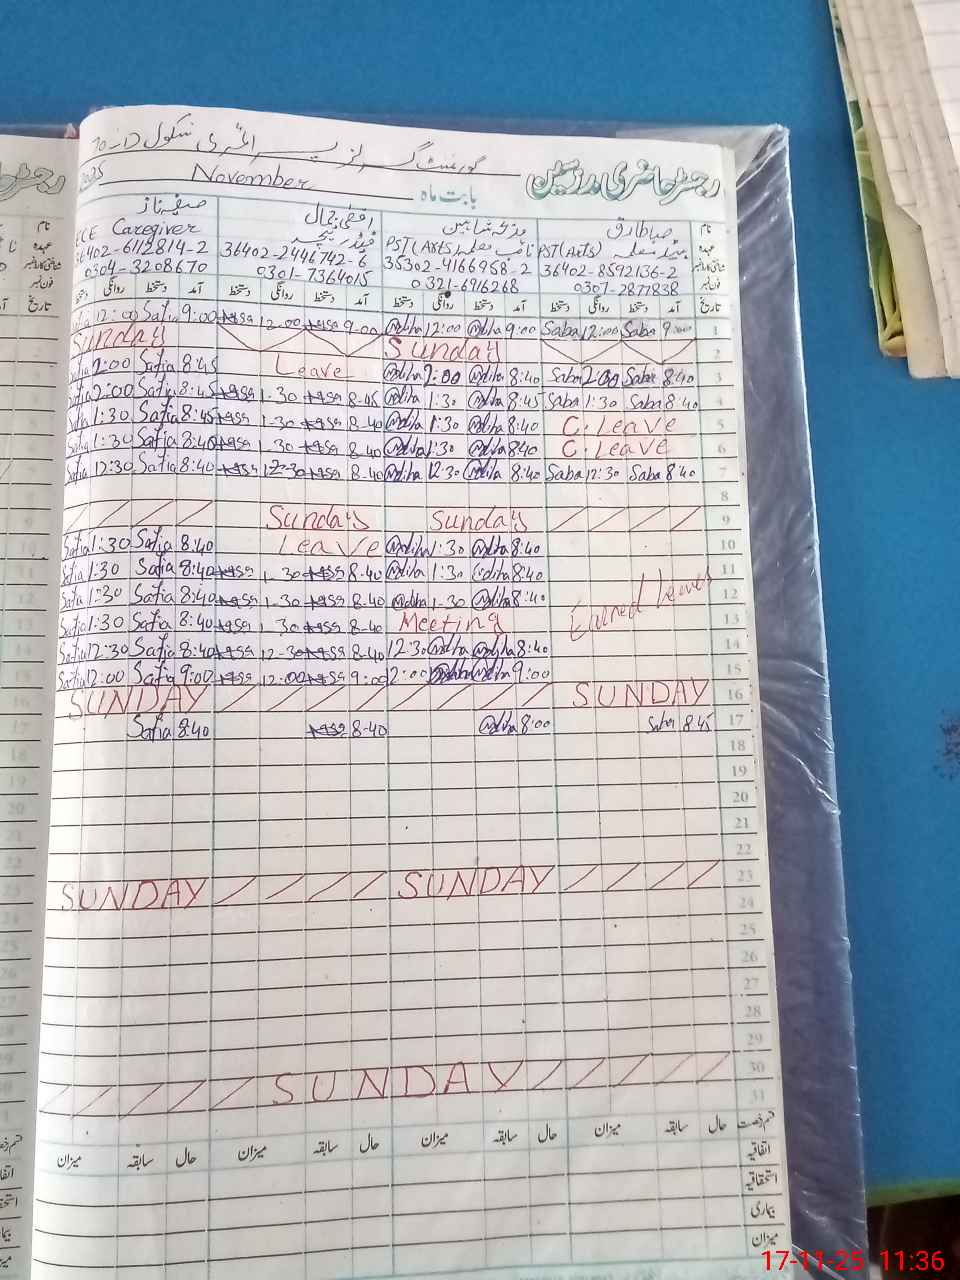 گورنمنٹ گرلز پرائمری سکول
رجسٹر حاضری مدرسین
بابت ماہ November 2025
نام صبا طارق صفیہ ناز
عہدہ PST (Arts) PST (Arts) نائب معلمہ ECE Caregiver
شناختی کارڈ نمبر 36402-8592136-2 35302-4166958-2 36402-2446742-6 36402-6112814-2
فون نمبر 0307-2877838 0321-6916268 0301-7364015 0304-3208670
تاریخ آمد دستخط روانگی دستخط آمد دستخط روانگی دستخط آمد دستخط روانگی دستخط آمد دستخط روانگی دستخط
1 9:00 Saba 12:00 Saba 9:00 12:00 9-00 12-00 9:00 Safia 12:00
2 Sunday Sunday
3 8:40 Saba 2:00 Saba 8:40 2:00 Leave 8:45 Safia 2:00
4 8:40 Saba 1:30 Saba 8:45 1:30 8-45 1-30 8:45 Safia 2:00
5 C. Leave 8:40 1:30 8-40 1-30 8:45 Safia 1:30
6 C. Leave 8:40 1:30 8-40 1-30 8:40 Safia 1:30
7 8:40 Saba 12:30 Saba 8:40 12:30 8-40 12-30 8:40 Safia 12:30
8
9 Sunday Sunday
10 8:40 1:30 Leave 8:40 Safia 1:30 Safia
11 8:40 1:30 8-40 1-30 8:40 Safia 1:30 Safia
12 Earned Leaves 8:40 1-30 8-40 1-30 8:40 Safia 1:30 Safia
13 Meeting 8-40 1-30 8:40 Safia 1:30 Safia
14 8:40 12:30 8-40 12-30 8:40 Safia 12:30 Safia
15 9:00 2:00 9:00 12:00 9:00 Safia 12:00 Safia
16 SUNDAY SUNDAY
17 8:45 Saba 8:00 8-40 8:40 Safia
18
19
20
21
22
23 SUNDAY SUNDAY
24
25
26
27
28
29
30 SUNDAY
31
قسم رخصت حال سابقہ میزان حال سابقہ میزان حال سابقہ میزان حال سابقہ میزان
اتفاقیہ
استحقاقیہ
بیماری
میزان
17-11-25 11:36